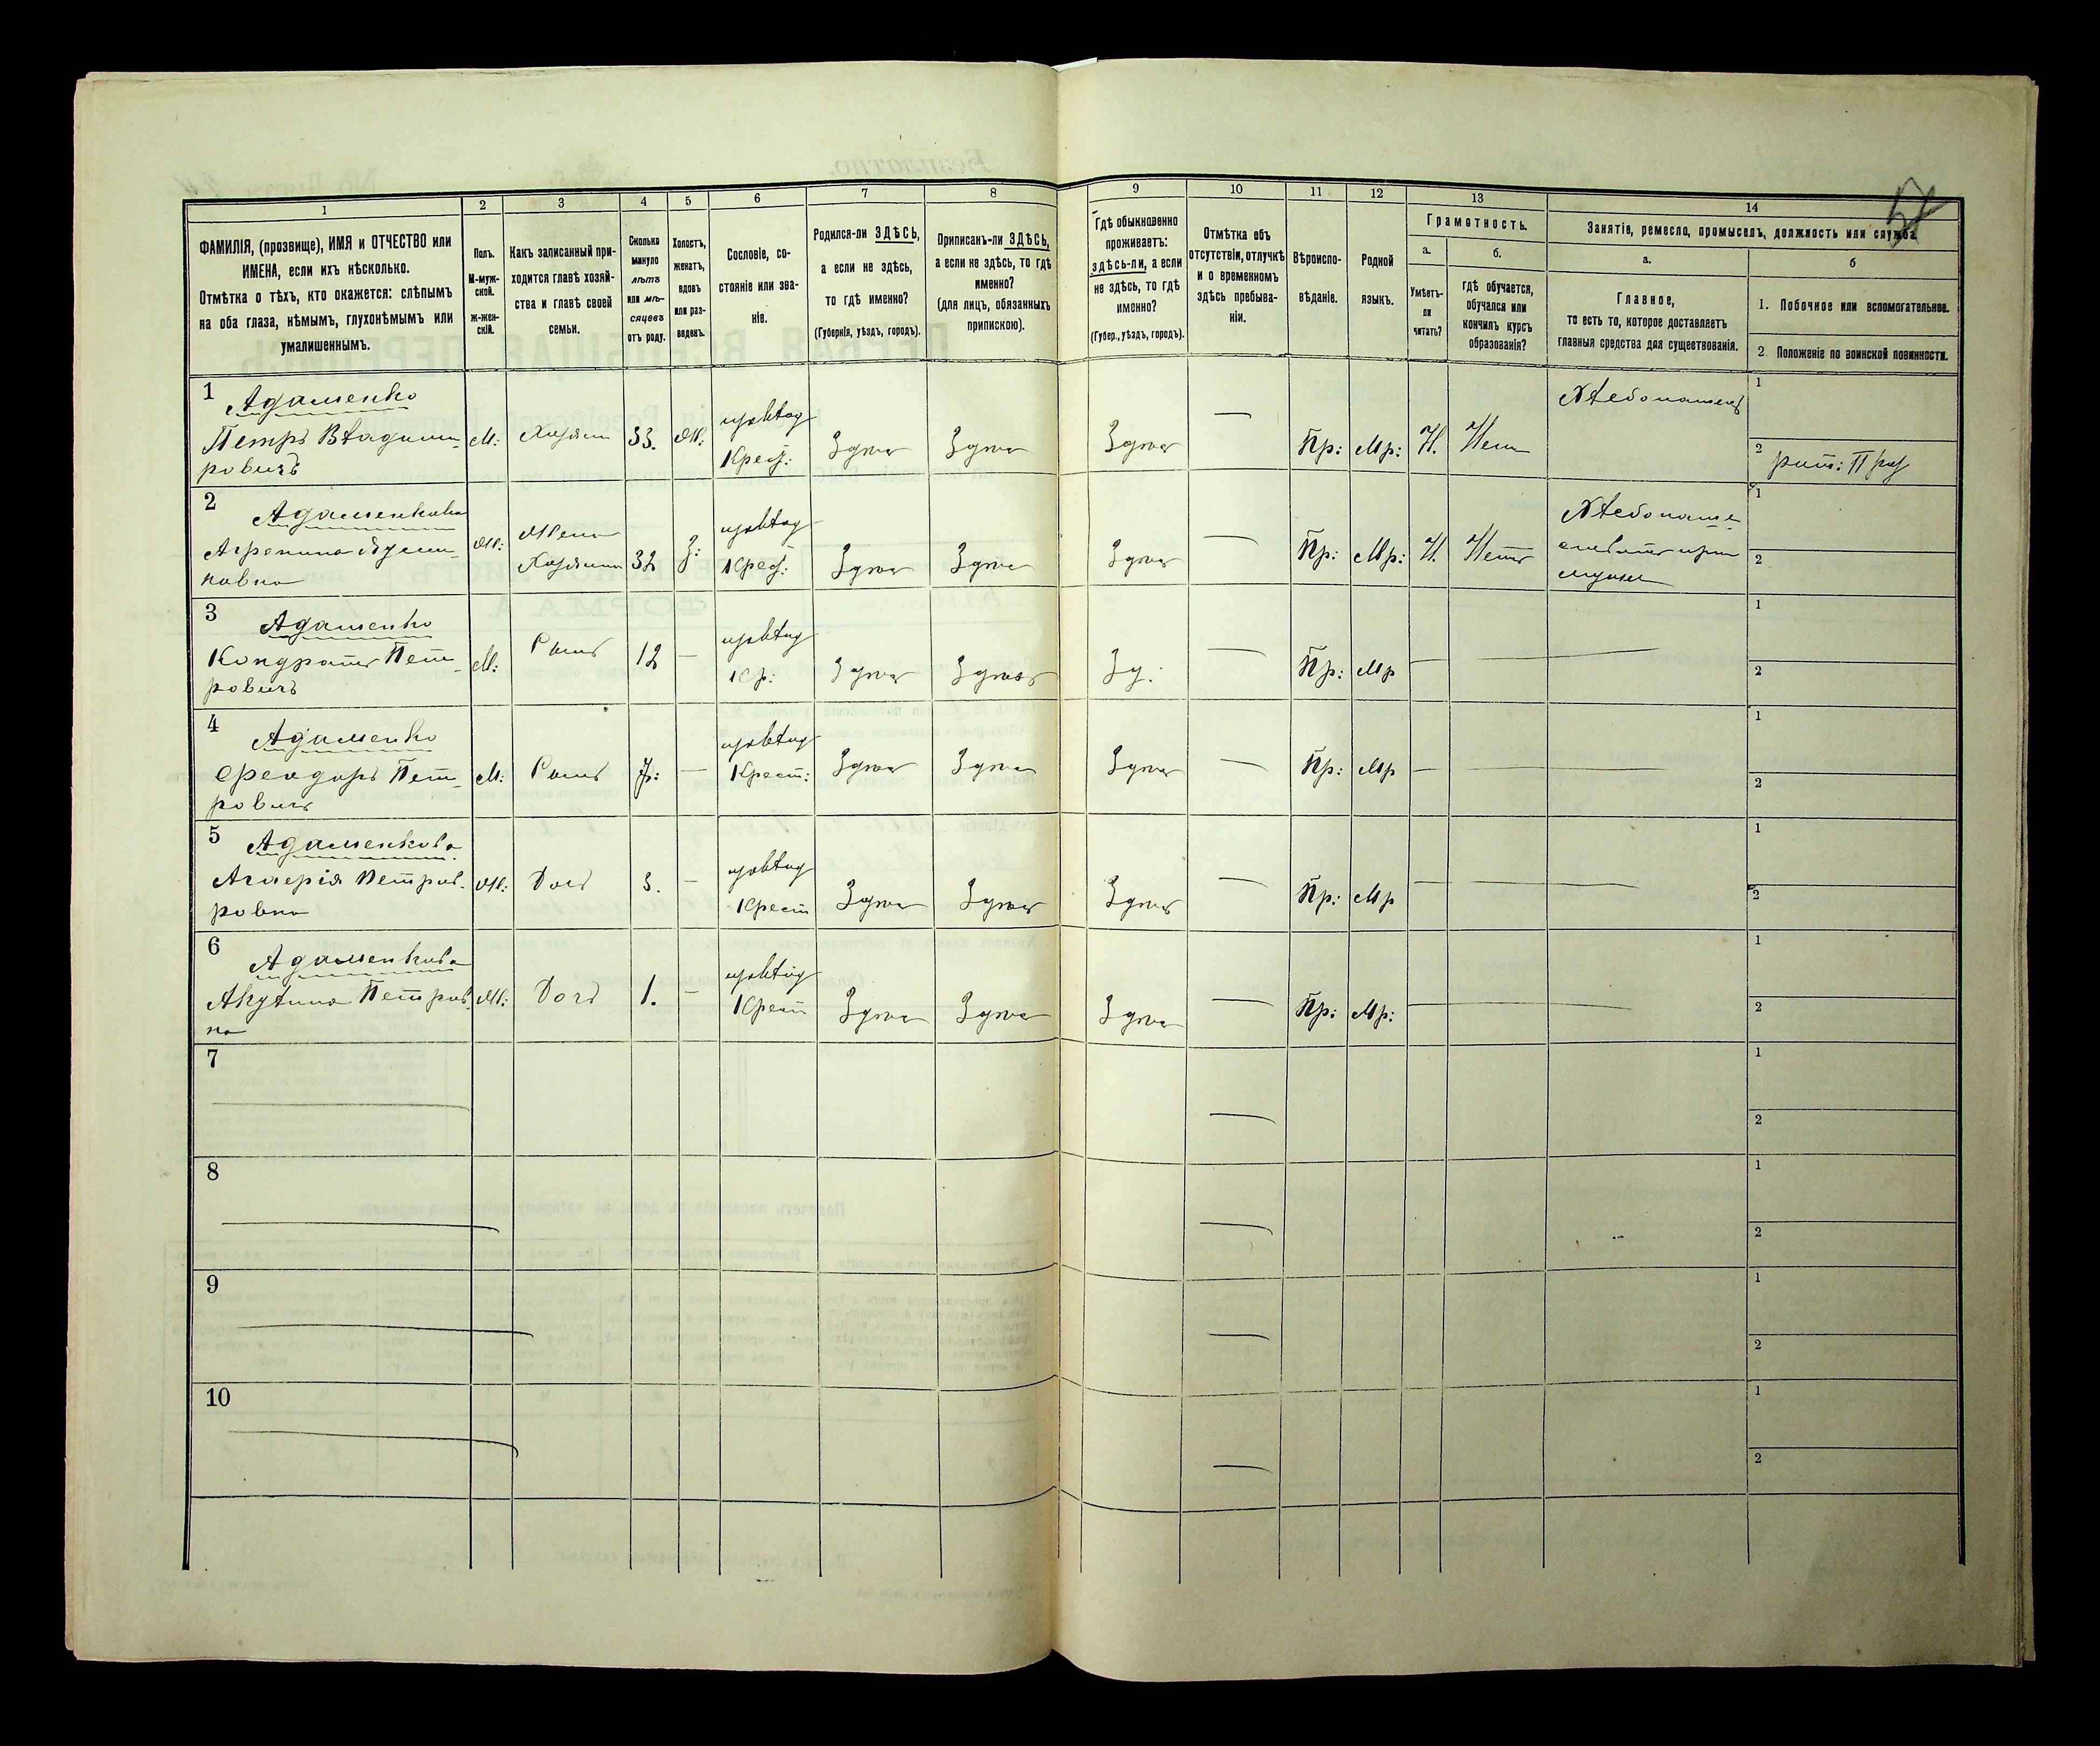 1
2
3
4
5
6
7
8
9
10
11
12
13
14
ФАМИЛІЯ, (прозвище), ИМЯ и ОТЧЕСТВО или
ИМЕНА, если ихъ нѣсколько.
Отмѣтка о тѣхъ, кто окажется: слѣпымъ
на оба глаза, нѣмымъ, глухонѣмымъ или
умалишеннымъ.
Полъ.
М-муж-
ской.
Ж-жен-
скій.
Какъ записанный при-
ходится главѣ хозяй-
ства и главѣ своей
семьи.
Сколько
минуло
лѣтъ
или мѣ-
сяцевъ
отъ роду.
Холостъ,
женатъ,
вдовъ
или раз-
веденъ.
Сословіе, со-
стояніе или зва-
ніе.
Родился-ли ЗДѢСЬ,
а если не здѣсь,
то гдѣ именно?
(Губернія, уѣздъ, городъ).
Приписанъ-ли ЗДѢСЬ,
а если не здѣсь, то гдѣ
именно?
(для лицъ, обязанныхъ
припискою).
Гдѣ обыкновенно
проживаетъ:
здѣсь-ли, а если
не здѣсь, то гдѣ
именно?
(Губер., уѣздъ, городъ).
Отмѣтка объ
отсутствіи, отлучкѣ
и о временномъ
здѣсь пребыва-
ніи.
Вѣроиспо-
вѣданіе.
Родной
языкъ.
Грамотность.
а.
Умѣетъ-
ли
читать?
б.
гдѣ обучается,
обучался или
кончилъ курсъ
образованія?
Занятіе, ремесло, промыселъ, должность или служба.
а.
Главное,
то есть то, которое доставляетъ
главныя средства для существованія.
б
1. Побочное или вспомогательное.
2. Положеніе по воинской повинности.
1
Адаменко
Петръ Владими
ровичъ
М:
Хозяин
33.
Ж:
Крест:
Здѣсь
Здѣсь
Здѣсь
—
Пр:
Мр:
Н.
Нет
Хлебопашец
1
2
2
Адаменкова
Агрепина
повна
Ж:
Жена
Хозяина
32
З:
Крест:
Здѣсь
Здѣсь
Здѣсь
—
Пр:
Мр:
Н.
Нет
Хлебопаше
при
муже
1
2
3
Адаменко
Кондратъ Пет
ровичъ
М:
Сынъ
12
—
Кр:
Здѣсь
Здѣсь
Зд:
—
Пр:
Мр
—
1
2
4
Адаменко
Феодоръ Пет
ровичъ
М:
Сынъ
7:
—
Крест:
Здѣсь
Здѣсь
Здѣсь
—
Пр:
Мр
—
1
2
5
Адаменкова
Петров-
ровна
Ж:
Доч
3.
—
Крест
Здѣсь
Здѣсь
Здѣсь
—
Пр:
Мр
—
1
2
6
Адаменкова
Акулина Петров
на
Ж:
Доч
1.
—
Крест
Здѣсь
Здѣсь
Здѣсь
—
Пр:
Мр:
—
1
2
7
1
2
8
1
2
9
1
2
10
1
2